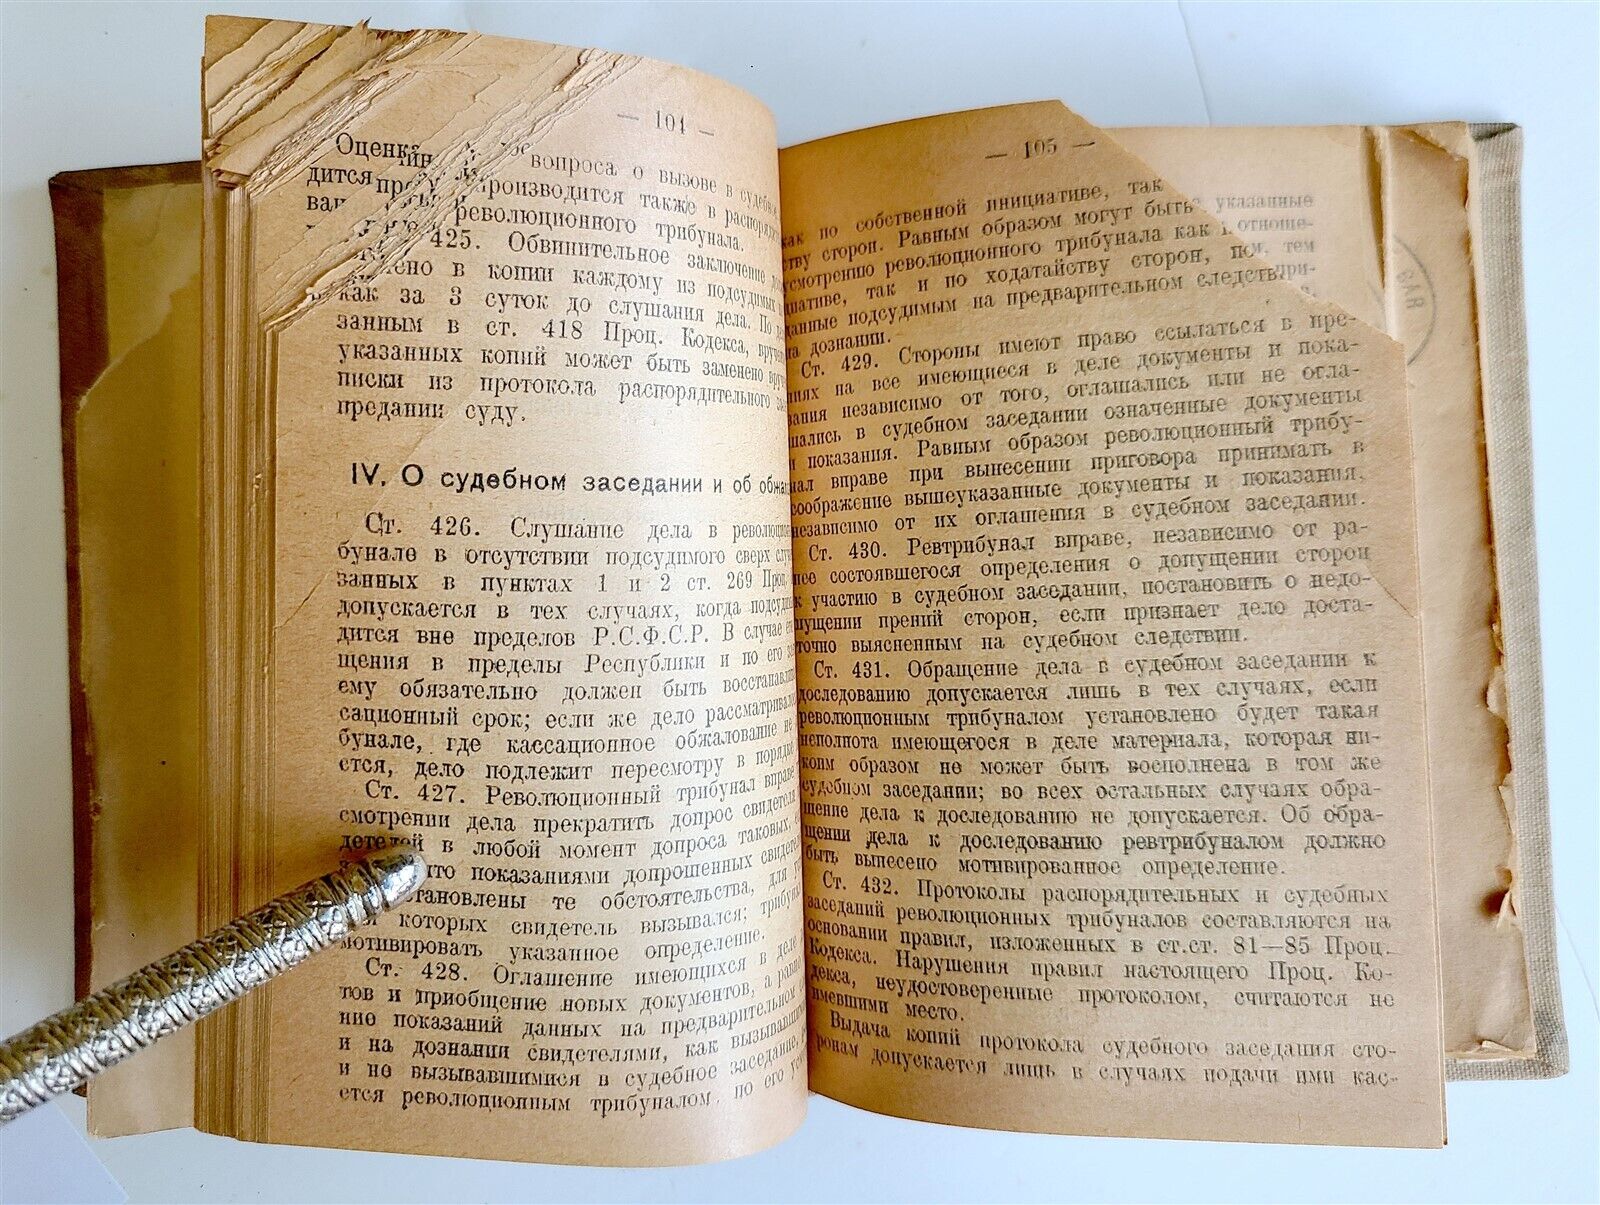 — 104 —
Оценка вопроса о вызове в судебное
дится производится также в распоряди
революционного трибунала.
425. Обвинительное заключение
в копии каждому из подсудимых
как за 3 суток до слушания дела. По
занным в ст. 418 Проц. Кодекса, вручен
указанных копий может быть заменено
писки из протокола распорядительного
предании суду.
IV. О судебном заседании и об обжа
Ст. 426. Слушание дела в революцион
бунале в отсутствии подсудимого сверх случ
занных в пунктах 1 и 2 ст. 269 Проц.
допускается в тех случаях, когда подсуди
дится вне пределов Р.С.Ф.С.Р. В случае
щения в пределы Республики и по его
ему обязательно должен быть восстанавли
сационный срок; если же дело рассматривало
бунале, где кассационное обжалование не
ется, дело подлежит пересмотру в порядке
Ст. 427. Революционный трибунал вправе
смотрении дела прекратить допрос свидетеля
детелей в любой момент допроса таковых,
что показаниями допрошенных свидетел
становлены те обстоятельства, для
которых свидетель вызывался; трибунал
мотивировать указанное определение.
Ст. 428. Оглашение имеющихся в деле
тов и приобщение новых документов, а равно
ние показаний данных на предварительном
и на дознании свидетелями, как вызывавшими
и не вызывавшимися в судебное заседание,
ется революционным трибуналом, по его
— 105 —
как по собственной инициативе, так
ству сторон. Равным образом могут быть указанные
усмотрению революционного трибунала как
циативе, так и по ходатайству сторон,
данные подсудимым на предварительном следствии
на дознании.
Ст. 429. Стороны имеют право ссылаться в пре-
ниях на все имеющиеся в деле документы и пока-
зания независимо от того, оглашались или не огла-
шались в судебном заседании означенные документы
и показания. Равным образом революционный трибу-
нал вправе при вынесении приговора принимать в
соображение вышеуказанные документы и показания,
независимо от их оглашения в судебном заседании.
Ст. 430. Ревтрибунал вправе, независимо от ра-
нее состоявшегося определения о допущении сторон
к участию в судебном заседании, постановить о недо-
пущении прений сторон, если признает дело доста-
точно выясненным на судебном следствии.
Ст. 431. Обращение дела в судебном заседании к
доследованию допускается лишь в тех случаях, если
революционным трибуналом установлено будет такая
неполнота имеющегося в деле материала, которая ни-
коим образом не может быть восполнена в том же
судебном заседании; во всех остальных случаях обра-
щение дела к доследованию не допускается. Об обра-
щении дела к доследованию ревтрибуналом должно
быть вынесено мотивированное определение.
Ст. 432. Протоколы распорядительных и судебных
заседаний революционных трибуналов составляются на
основании правил, изложенных в ст.ст. 81—85 Проц.
Кодекса. Нарушения правил настоящего Проц. Ко-
декса, неудостоверенные протоколом, считаются не
имевшими место.
Выдача копий протокола судебного заседания сто-
ронам допускается лишь в случаях подачи ими кас-